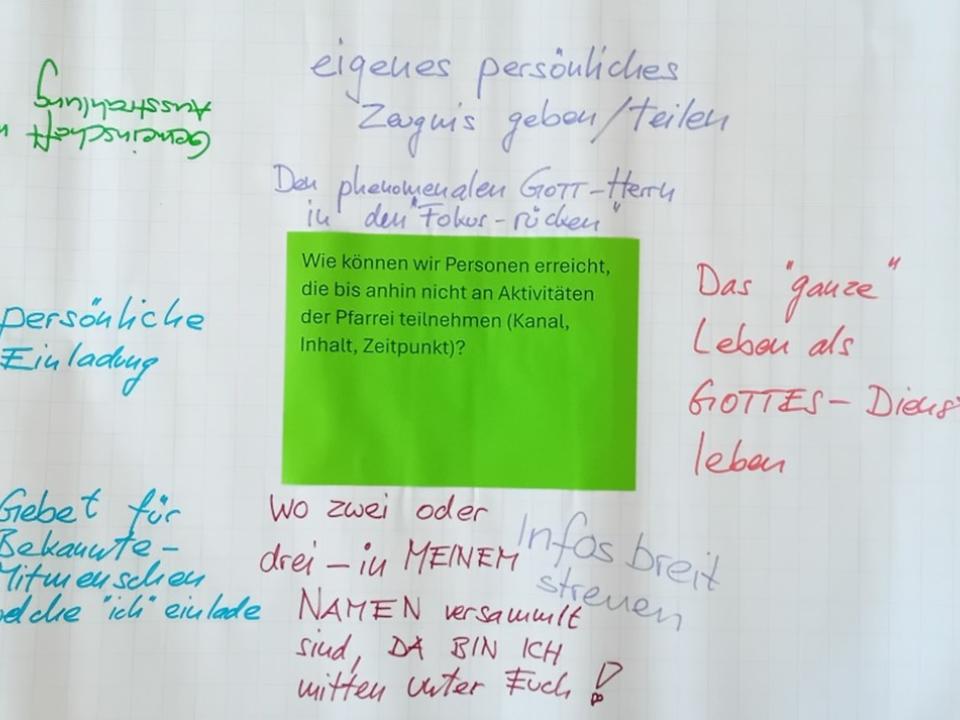 eigenes persönliches
Zeugnis geben/teilen
Den phenomenalen GOTT-Herrn
in den "Fokus-rücken"
Gemeinschaft
Ausstrahlung
Wie können wir Personen erreicht,
die bis anhin nicht an Aktivitäten
der Pfarrei teilnehmen (Kanal,
Inhalt, Zeitpunkt)?
persönliche
Einladung
Das "ganze"
Leben als
GOTTES-Dienst
leben
Gebet für
Bekannte-
Mitmenschen
welche "ich" einlade
Wo zwei oder
drei - in MEINEM
NAMEN versammlt
sind, DA BIN ICH
mitten unter Euch!
Infos breit
streuen